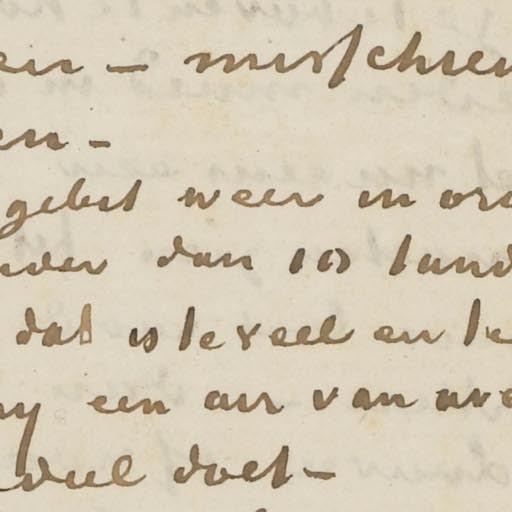 en – misschien
en –
gebit weer in ord
der dan 10 tand
dat is te veel en te
my een air van ove
deel doet –